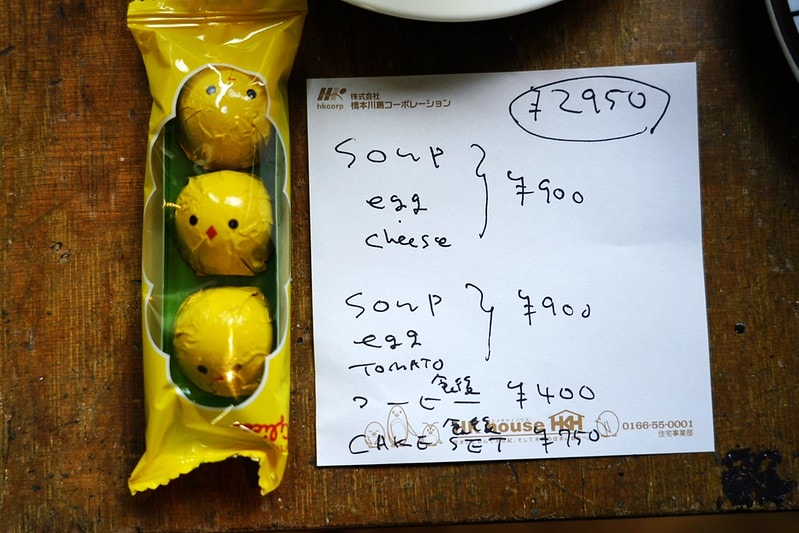 株式会社
hkcorp 橋本川島コーポレーション
¥2950
SOUP
egg
cheese
¥900
SOUP
egg
TOMATO
¥900
食後
コーヒー ¥400
食後
CAKE SET ¥750
house HKH
0166-55-0001
住宅事業部